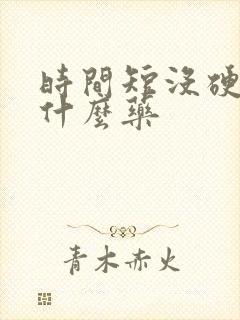 時間短沒硬
什麼藥
青木赤火